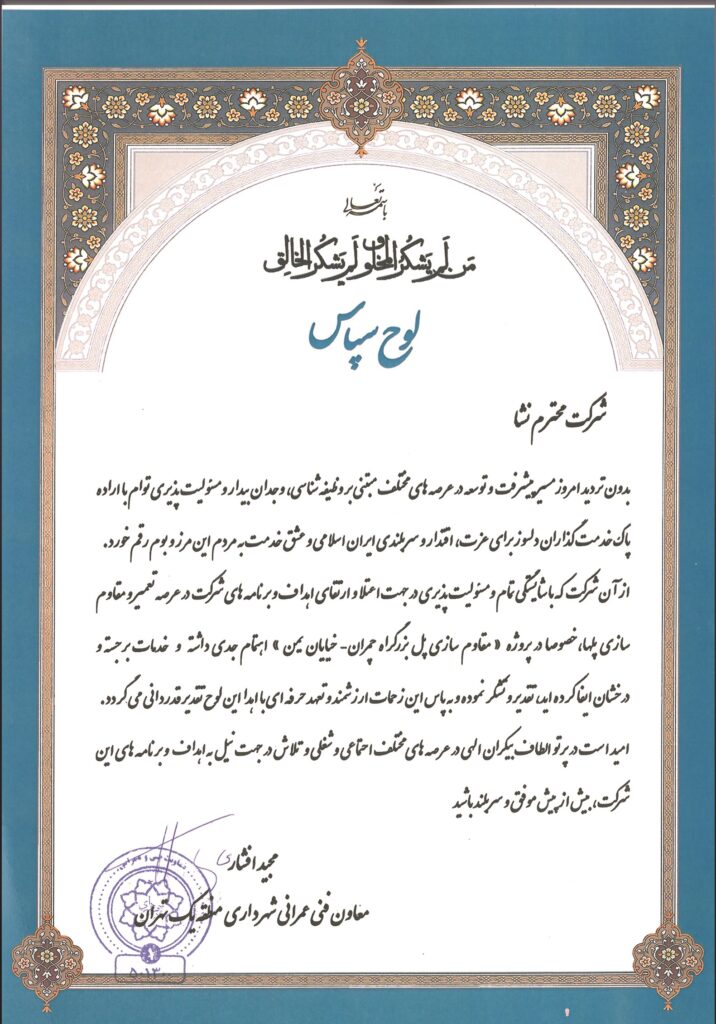 باسمه تعالی
مَن لَم یَشکُرُ المَخلوق لَم یَشکُرُ الخالِق
لوح سپاس
شرکت محترم نشا
بدون تردید امروز مسیر پیشرفت و توسعه در عرصه های مختلف مبتنی بر وظیفه شناسی، وجدان بیدار و مسئولیت پذیری توام با اراده
پاک خدمت گذاران دلسوز برای عزت، اقتدار و سربلندی ایران اسلامی و عشق خدمت به مردم این مرز و بوم رقم خورد.
از آن شرکت که با شایستگی تمام و مسئولیت پذیری در جهت اعتلا و ارتقای اهداف و برنامه های شرکت در عرصه تعمیر و مقاوم
سازی پلها، خصوصا در پروژه « مقاوم سازی پل بزرگراه چمران- خیابان یمن » اهتمام جدی داشته و خدمات برجسته و
درخشان ایفا کرده اید، تقدیر و تشکر نموده و به پاس این زحمات ارزشمند و تعهد حرفه ای با اهدا این لوح تقدیر قدردانی می گردد.
امید است در پرتو الطاف بیکران الهی در عرصه های مختلف اجتماعی و شغلی و تلاش در جهت نیل به اهداف و برنامه های این
شرکت، بیش از پیش موفق و سربلند باشید
مجید افشاری
معاون فنی عمرانی شهرداری منطقه یک تهران
معاونت فنی و عمرانی
۱